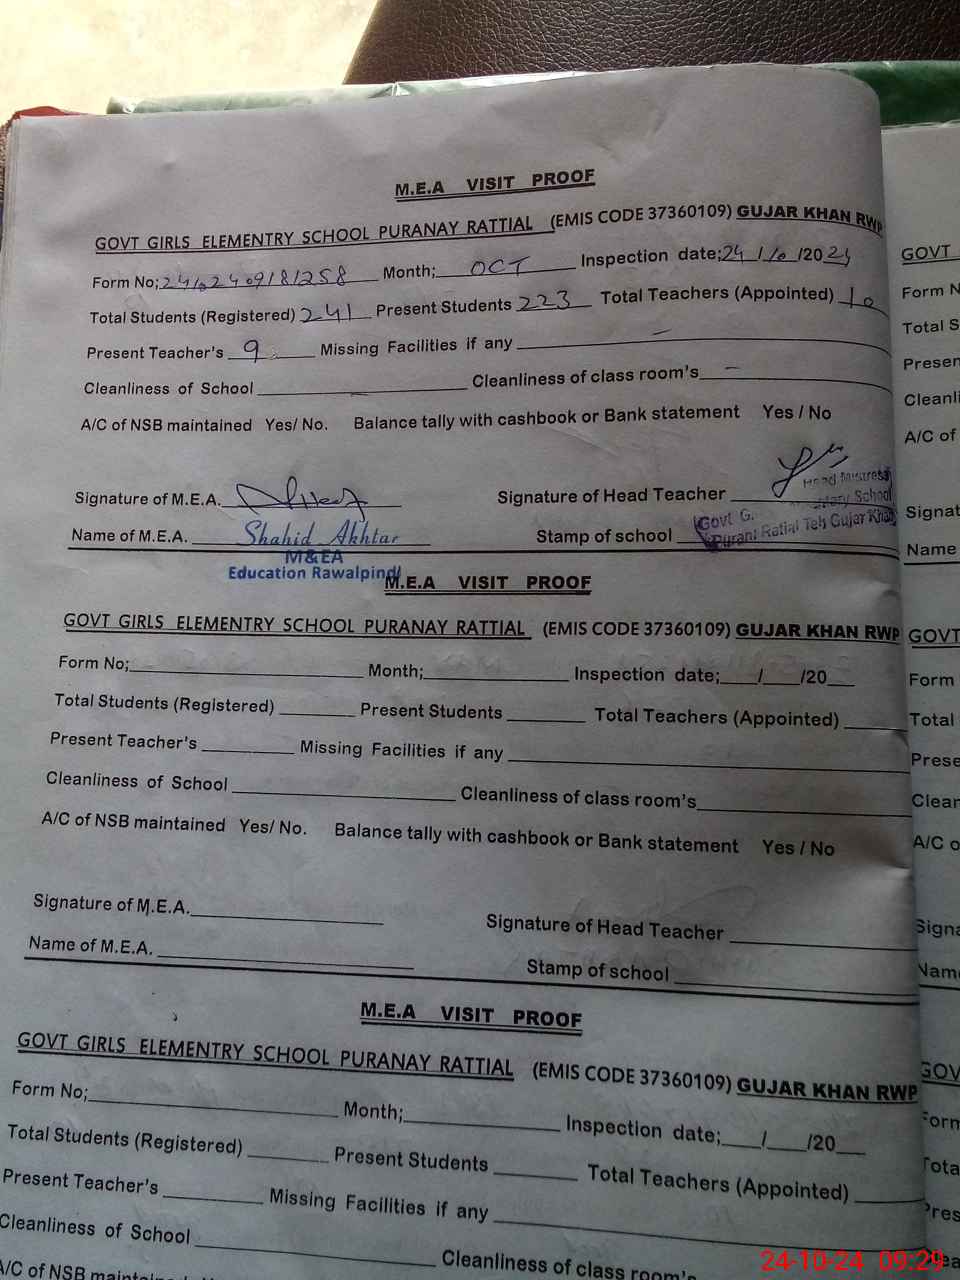 M.E.A VISIT PROOF
GOVT GIRLS ELEMENTRY SCHOOL PURANAY RATTIAL (EMIS CODE 37360109) GUJAR KHAN RWP
Form No; 24102409181258 Month; OCT Inspection date; 24/10/2024
Total Students (Registered) 241 Present Students 223 Total Teachers (Appointed) 10
Present Teacher's 9 Missing Facilities if any —
Cleanliness of School Cleanliness of class room's —
A/C of NSB maintained Yes/ No. Balance tally with cashbook or Bank statement Yes / No
Signature of M.E.A. Signature of Head Teacher
Head Mistress
Name of M.E.A. Shahid Akhtar Stamp of school
Govt G. School
Purani Ratial Teh Gujar Khan
M&EA
Education Rawalpindi
M.E.A VISIT PROOF
GOVT GIRLS ELEMENTRY SCHOOL PURANAY RATTIAL (EMIS CODE 37360109) GUJAR KHAN RWP
Form No; Month; Inspection date; / /20
Total Students (Registered) Present Students Total Teachers (Appointed)
Present Teacher's Missing Facilities if any
Cleanliness of School Cleanliness of class room's
A/C of NSB maintained Yes/ No. Balance tally with cashbook or Bank statement Yes / No
Signature of M.E.A. Signature of Head Teacher
Name of M.E.A. Stamp of school
M.E.A VISIT PROOF
GOVT GIRLS ELEMENTRY SCHOOL PURANAY RATTIAL (EMIS CODE 37360109) GUJAR KHAN RWP
Form No; Month; Inspection date; / /20
Total Students (Registered) Present Students Total Teachers (Appointed)
Present Teacher's Missing Facilities if any
Cleanliness of School Cleanliness of class room's
A/C of NSB
GOVT
Form N
Total S
Presen
Cleanli
A/C of
Signat
Name
GOVT
Form
Total
Prese
Clear
A/C o
Signa
Nam
GOV
Form
Tota
Pres
24-10-24 09:29